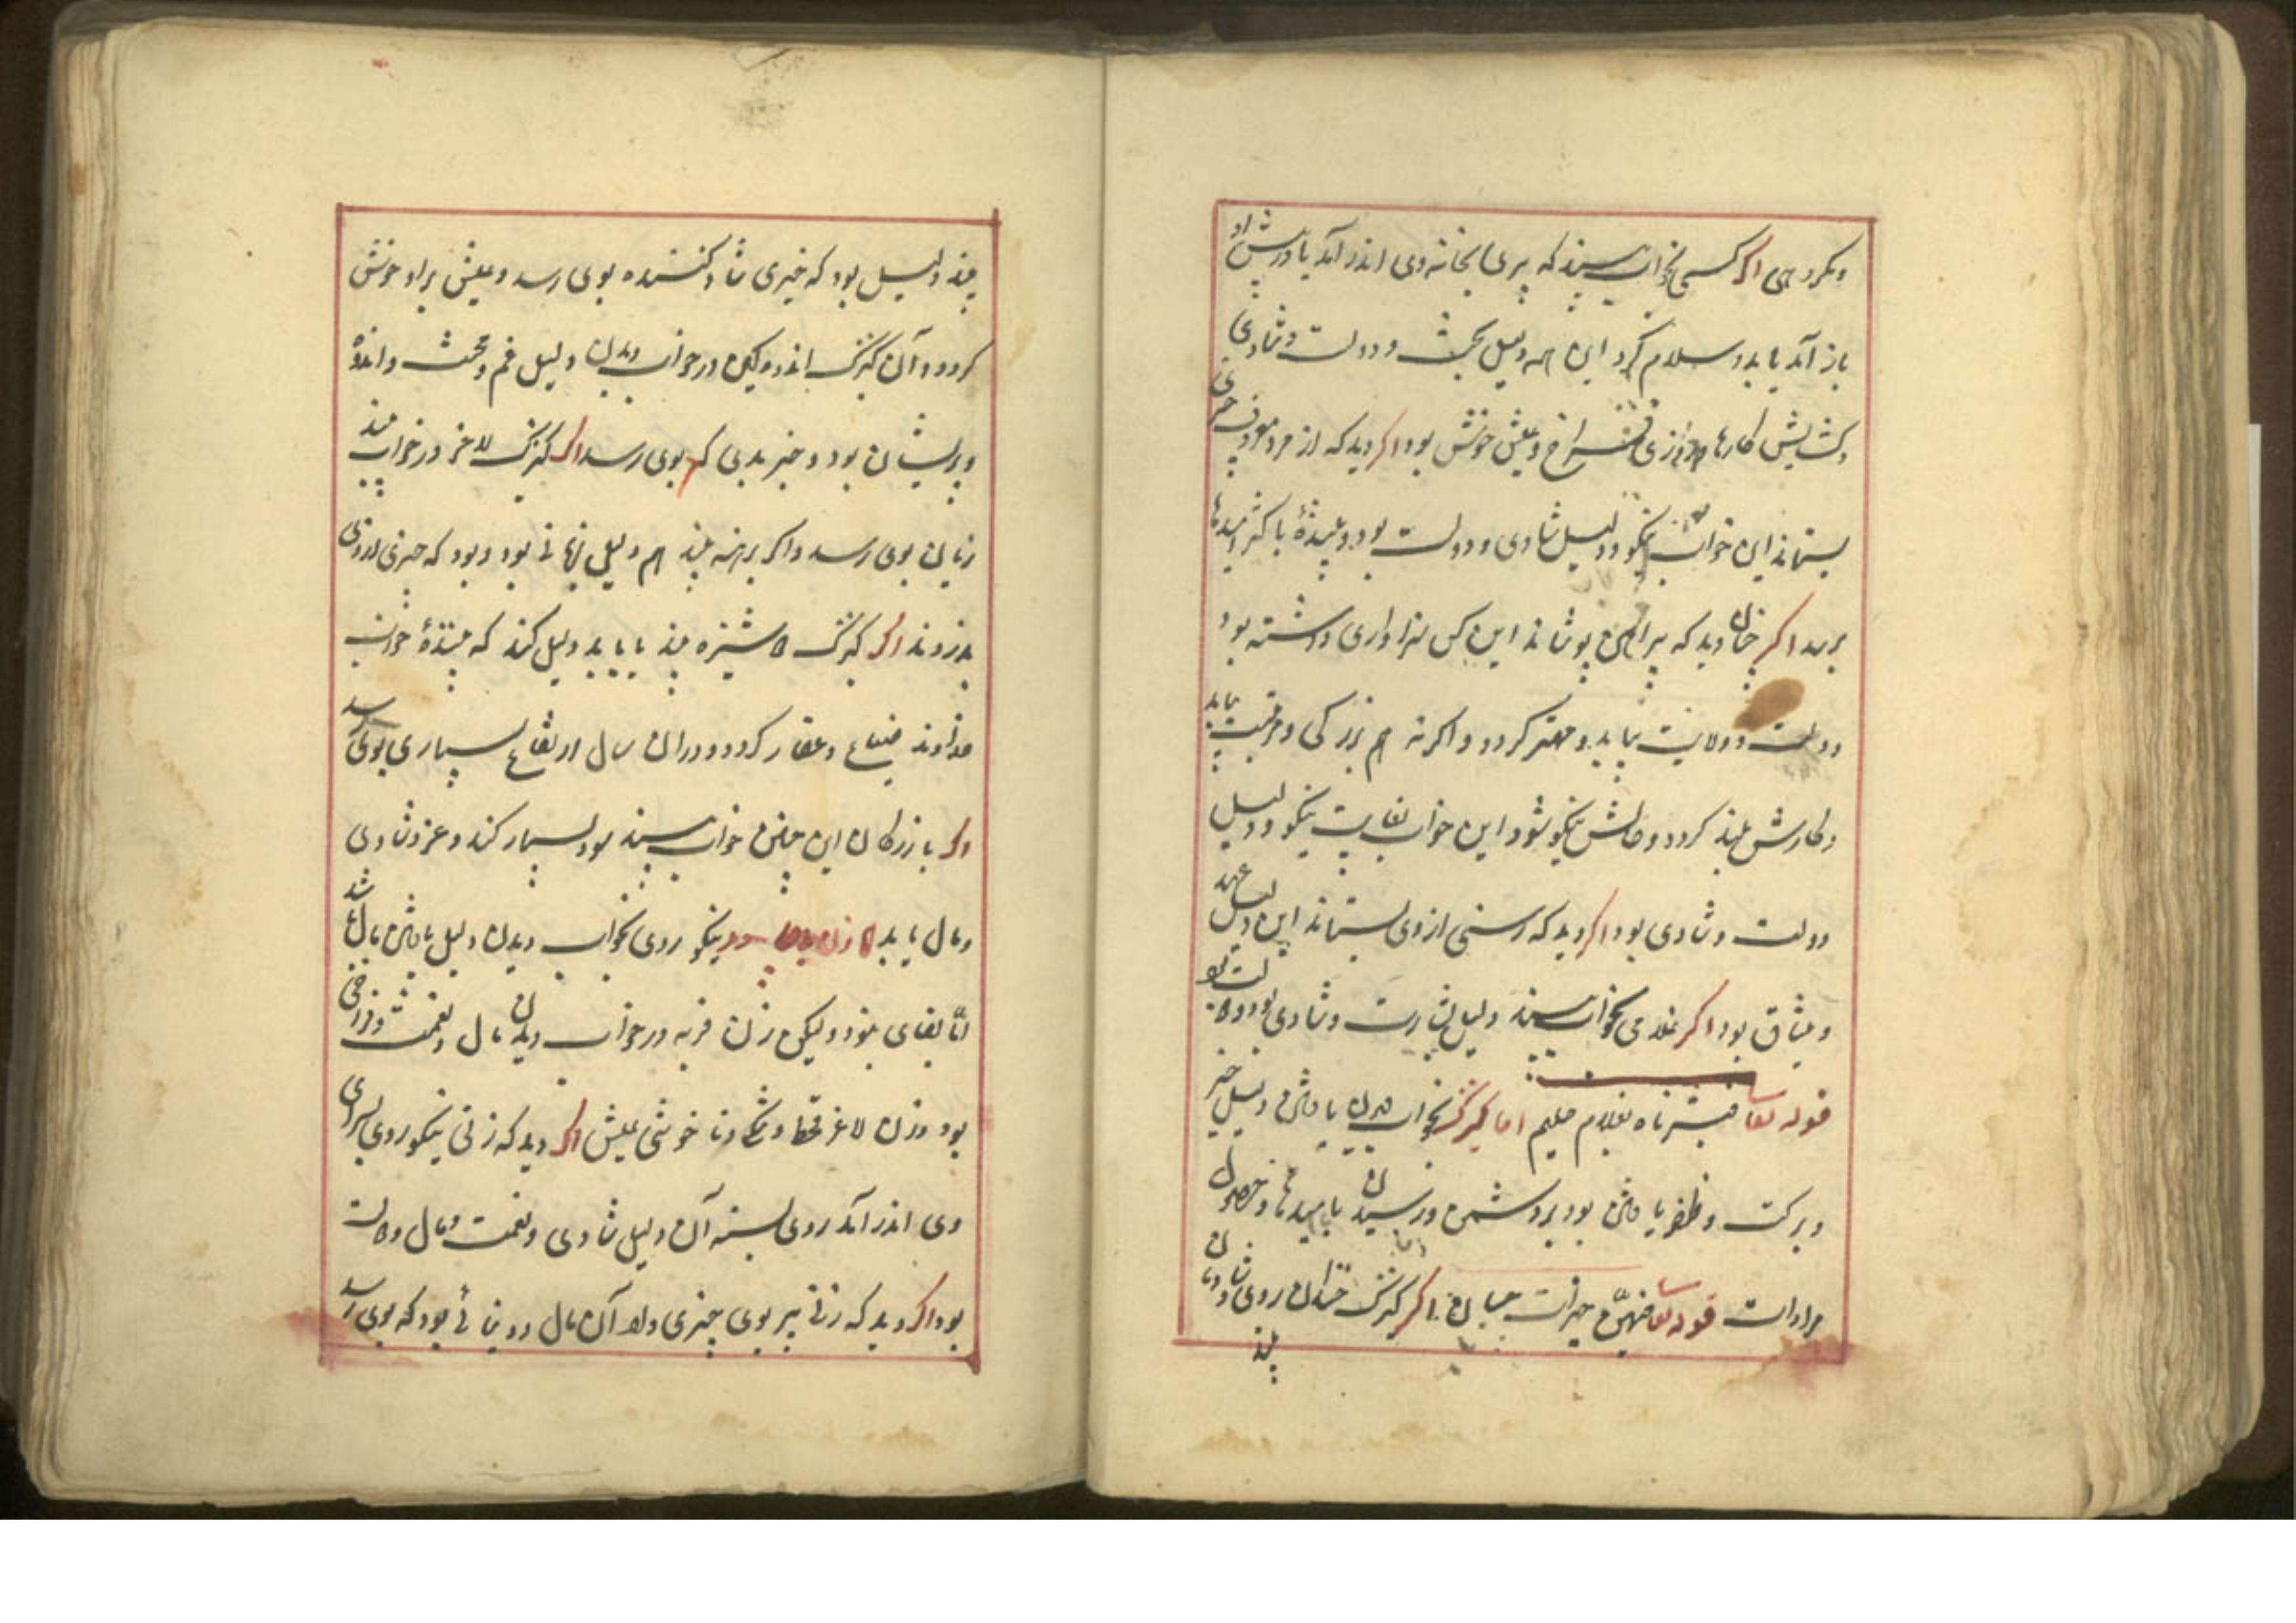 و مکروهی اگر کسی بخواب بیند که پری بخانه وی اندر آمد یا درپیش او
باز آمد یا بدو سلام کرد این همه دلیل بخت و دولت و شادی
و کشایش کارها و روزی فراخ و عیش خوش بود اگر دید که از مردم معروف چیزی
بستاند این خواب نیکو و دلیل شادی و دولت بود و بیننده باکثر امیدها
برسد اگر چنان دید که پیراهن پوشاند این کس سزاواری داشته بود
دولت و ولایت بیابد و مهتر کردد و اکر نه هم بزرکی و مرتبت بیابد
و کارش بلند کردد و حالش نیکو شود این خواب بغایت نیکو و دلیل
دولت و شادی بود اگر دید که رسنی از وی بستاند این دلیل عهد
و میثاق بود اگر غلامی بخواب بیند دلیل بشارت و شادی بود و ولایت بود
قوله تعا فبشرناه بغلام حلیم اما کنیزک بخواب دیدن یا فتن دلیل خیر
و برکت و ظفر یافتن بود بر دشمن و رسیدن بامیدها و حصول
مرادات قوله تعا فیهن خیرات حسان اگر کنیزک خندان روی و شادمان
بیند
بیند دلیل بود که خبری شاد کننده بوی رسد و عیش براو خوش
کردد و آن کنیزک اندوهکین در خواب دیدن دلیل غم و محنت و اندوه
و پریشان بود و خبر بدی که بوی رسد اگر کنیزک لاغر در خواب بیند
زیان بوی رسد و اکر برهنه بیند هم دلیل زیانی بود و بود که چیزی از وی
بدزدند اگر کنیزک دوشیزه بیند یا یابد دلیل کند که بینندهٔ خواب
خداوند ضیاع و عقار کردد و دران سال ارتفاع بسیاری بوی رسد
اگر بازرکان این چنین خواب بیند سود بسیار کند و عز و شادی
و مال یابد نیکو روی بخواب دیدن دلیل یافتن مال باشد
امّا بقای نبود و لیکن زن فربه در خواب دیدن مال و نعمت و فراخی
بود و زن لاغر قحط و تنکی و ناخوشی عیش اگر دید که زنی نیکو روی بسرای
وی اندر آمد روی بسته آن دلیل شادی و نعمت و مال و ولایت
بود اگر دید که زنی پیر بوی چیزی داد آن مال دنیائی بود که بوی رسد